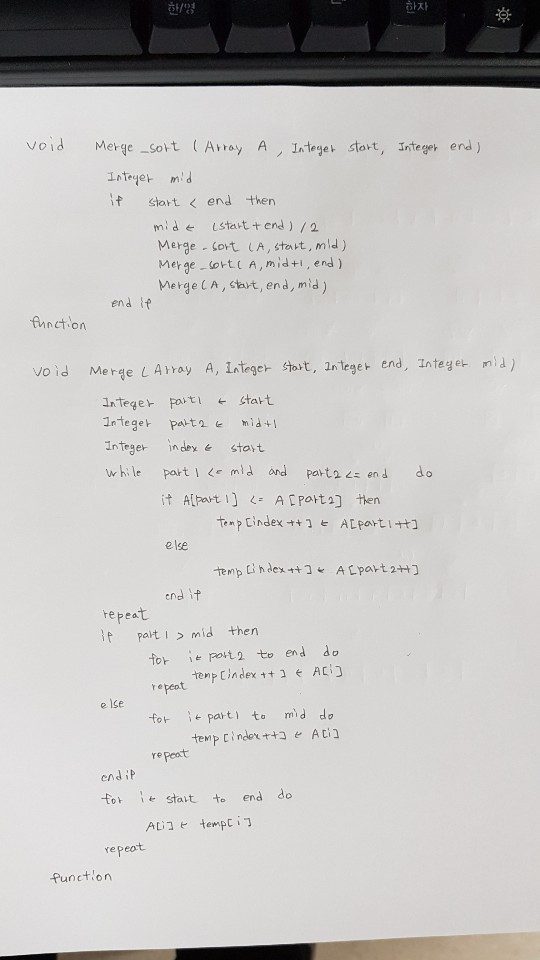 한/영
한자
void Merge_sort ( Array A , Integer start, Integer end )
Integer mid
if start < end then
mid ← (start + end) / 2
Merge_sort (A, start, mid)
Merge_sort ( A, mid+1, end )
Merge ( A, start, end, mid )
end if
function
void Merge ( Array A, Integer start, Integer end, Integer mid )
Integer part1 ← start
Integer part2 ← mid+1
Integer index ← start
while part1 <= mid and part2 <= end do
if A[part1] <= A[part2] then
temp[index++] ← A[part1++]
else
temp[index++] ← A[part2++]
end if
repeat
if part1 > mid then
for i ← part2 to end do
temp[index++] ← A[i]
repeat
else
for i ← part1 to mid do
temp[index++] ← A[i]
repeat
endif
for i ← start to end do
A[i] ← temp[i]
repeat
function